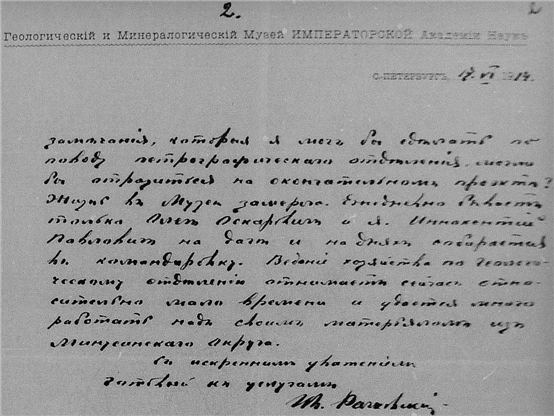 2.
2
Геологическій и Минералогическій Музей ИМПЕРАТОРСКОЙ Академіи Наукъ
С.-ПЕТЕРБУРГЪ, 17. VI 1914.
замѣчанія, которыя я могъ бы сдѣлать по
поводу петрографическаго отдѣленія, могли
бы отразиться на окончательномъ проэктѣ?
Жизнь въ Музеѣ замерла. Ежедневно бываетъ
только Оскаровичъ и я. Иннокентій
Павловичъ на дачѣ и на дняхъ собирается
въ командировку. Веденіе хозяйства по геологи-
ческому отдѣленію отнимаетъ сейчасъ отно-
сительно мало времени и удается много
работать надъ своимъ матерьяломъ изъ
Минусинскаго округа.
Съ искреннимъ уваженіемъ
готовый къ услугамъ
Ив. Рачковскій